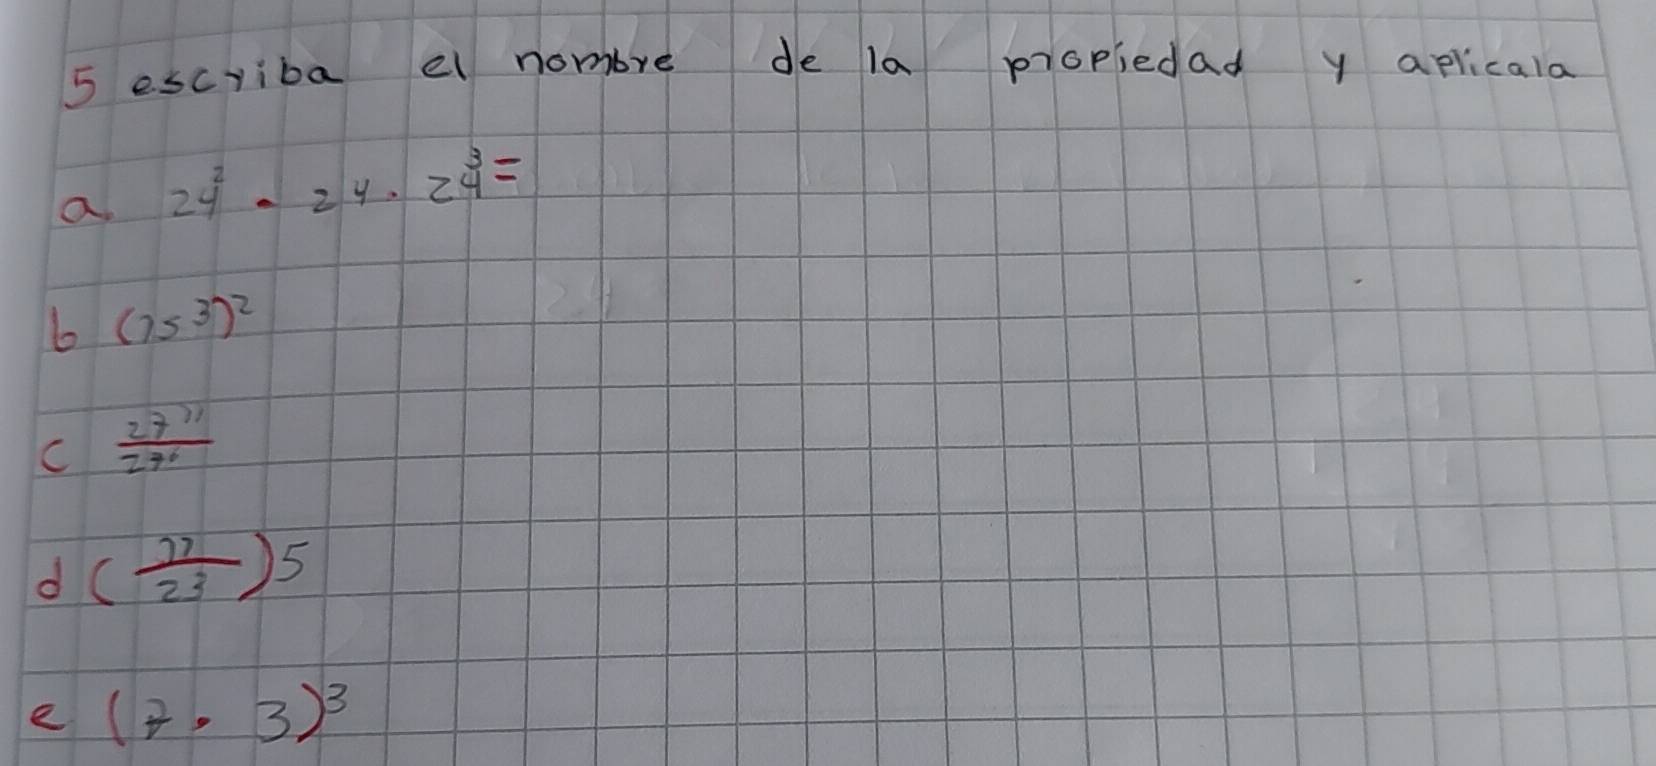 5 escriba el nombre de la propiedad y aplicala
a. 24² · 24 · 24³ =
b (75³)²
c 27¹¹ / 27⁶
d (77 / 23)5
e (7 · 3)³